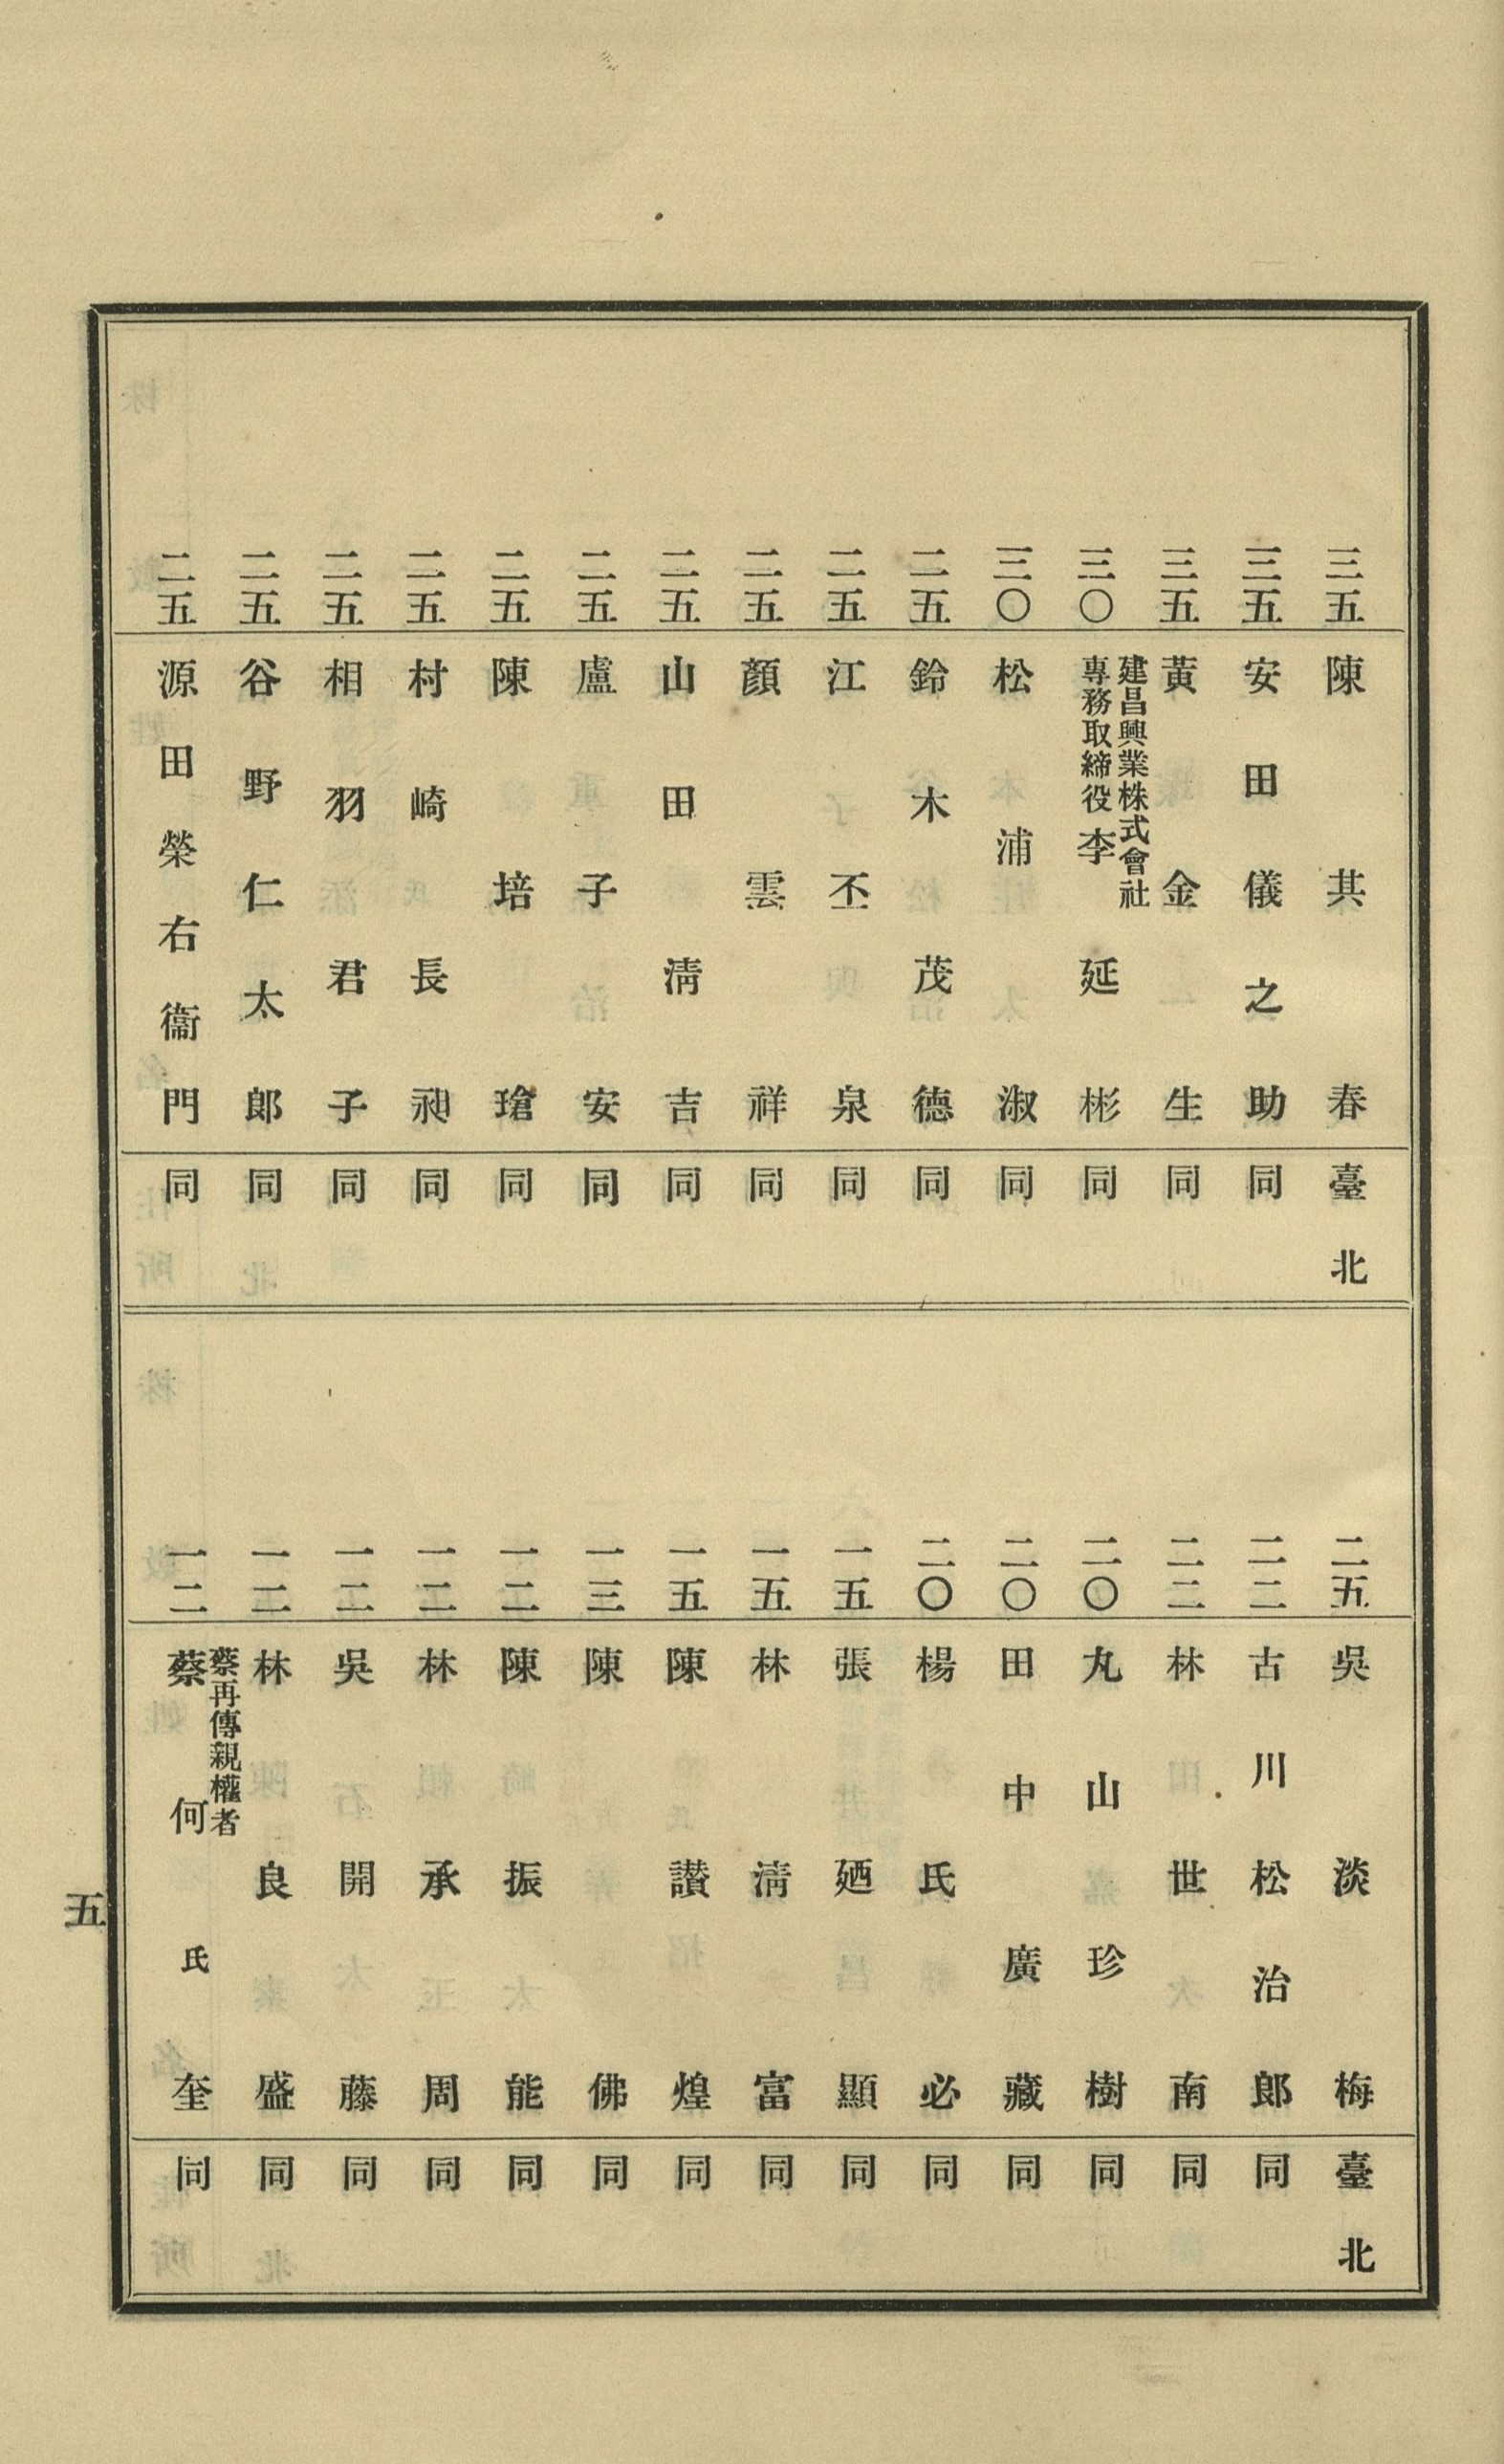 三五 陳其春 臺北
三五 安田儀之助 同
三五 黃金生 同
三〇 建昌興業株式會社專務取締役 李延彬 同
三〇 松浦淑 同
二五 鈴木茂德 同
二五 江丕泉 同
二五 顏雲祥 同
二五 山田淸吉 同
二五 盧子安 同
二五 陳培瑲 同
二五 村崎長昶 同
二五 相羽君子 同
二五 谷野仁太郎 同
二五 源田榮右衞門 同
二五 吳淡梅 臺北
二二 古川松治郎 同
二二 林世南 同
二〇 丸山珍樹 同
二〇 田中廣藏 同
二〇 楊氏必 同
一五 張廼顯 同
一五 林淸富 同
一五 陳讃煌 同
一三 陳佛 同
一二 陳振能 同
一二 林承周 同
一二 吳開藤 同
一二 林良盛 同
一二 蔡再傳親權者 蔡何氏奎 同
五